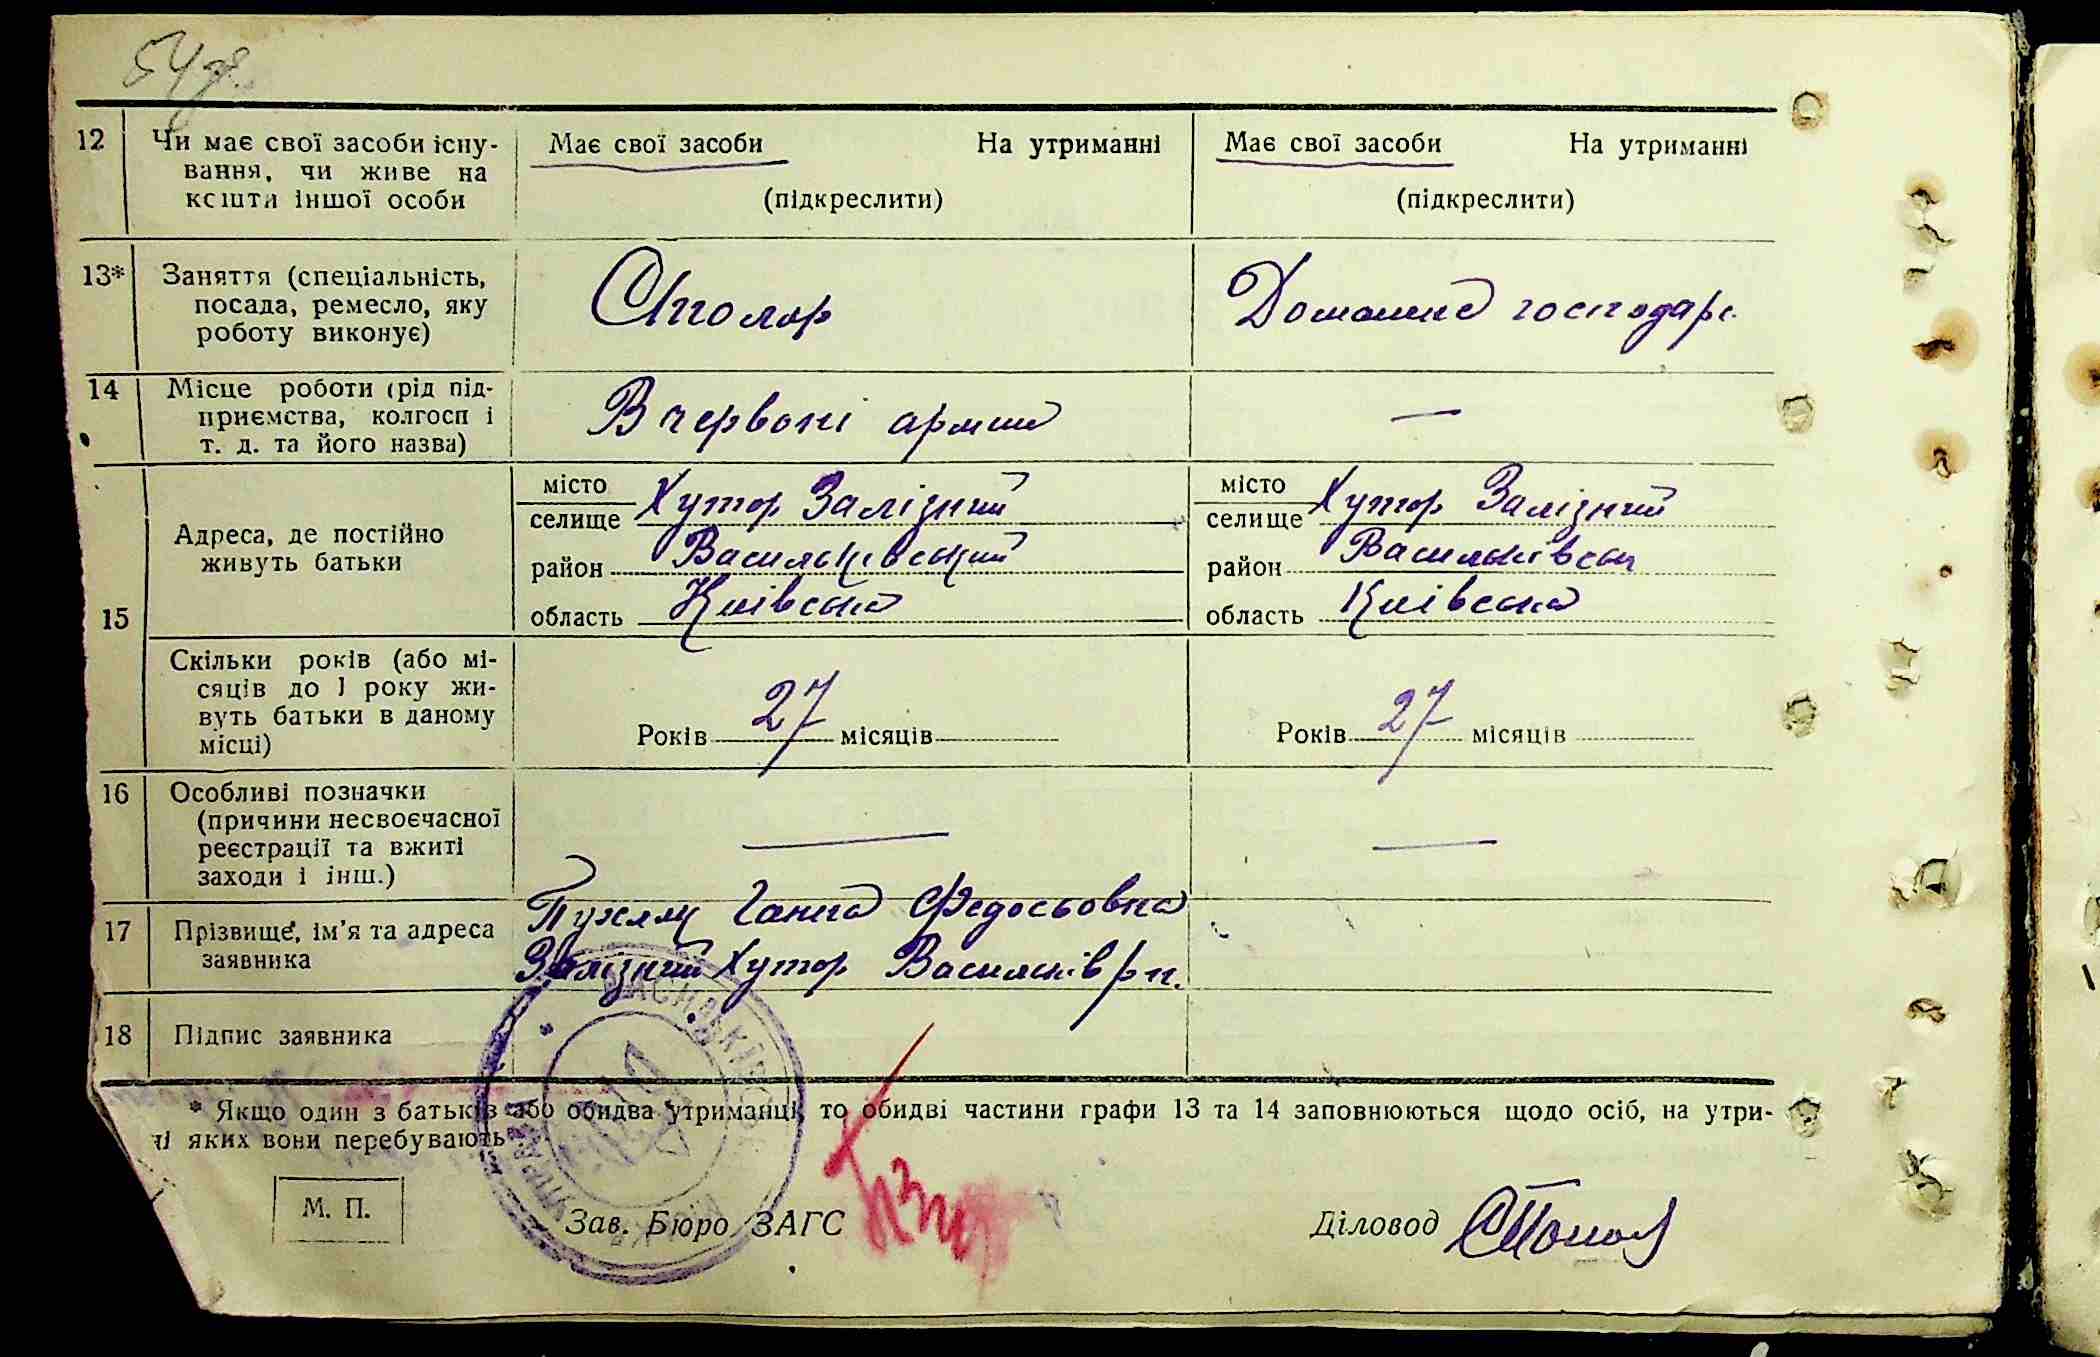 54
12 Чи має свої засоби існу- Має свої засоби На утриманні Має свої засоби На утриманні
вання, чи живе на
кошти іншої особи (підкреслити) (підкреслити)
13* Заняття (спеціальність,
посада, ремесло, яку Столяр Домашнє господар.
роботу виконує)
14 Місце роботи (рід під-
приємства, колгосп і В червоні армии —
т. д. та його назва)
місто Хутор Залізний місто Хутор Залізний
селище селище
15 Адреса, де постійно
живуть батьки район Васильківський район Васильківськ
область Київська область Київська
Скільки років (або мі-
сяців до 1 року жи-
вуть батьки в даному
місці) Років 27 місяців Років 27 місяців
16 Особливі позначки
(причини несвоєчасної
реєстрації та вжиті — —
заходи і інш.)
17 Прізвище, ім'я та адреса Ганна Федосьовна
заявника Залізний Хутор Васильків рн.
18 Підпис заявника
* Якщо один з батьків або обидва утриманці, то обидві частини графи 13 та 14 заповнюються щодо осіб, на утри-
ні яких вони перебувають.
М. П.
Зав. Бюро ЗАГС Діловод